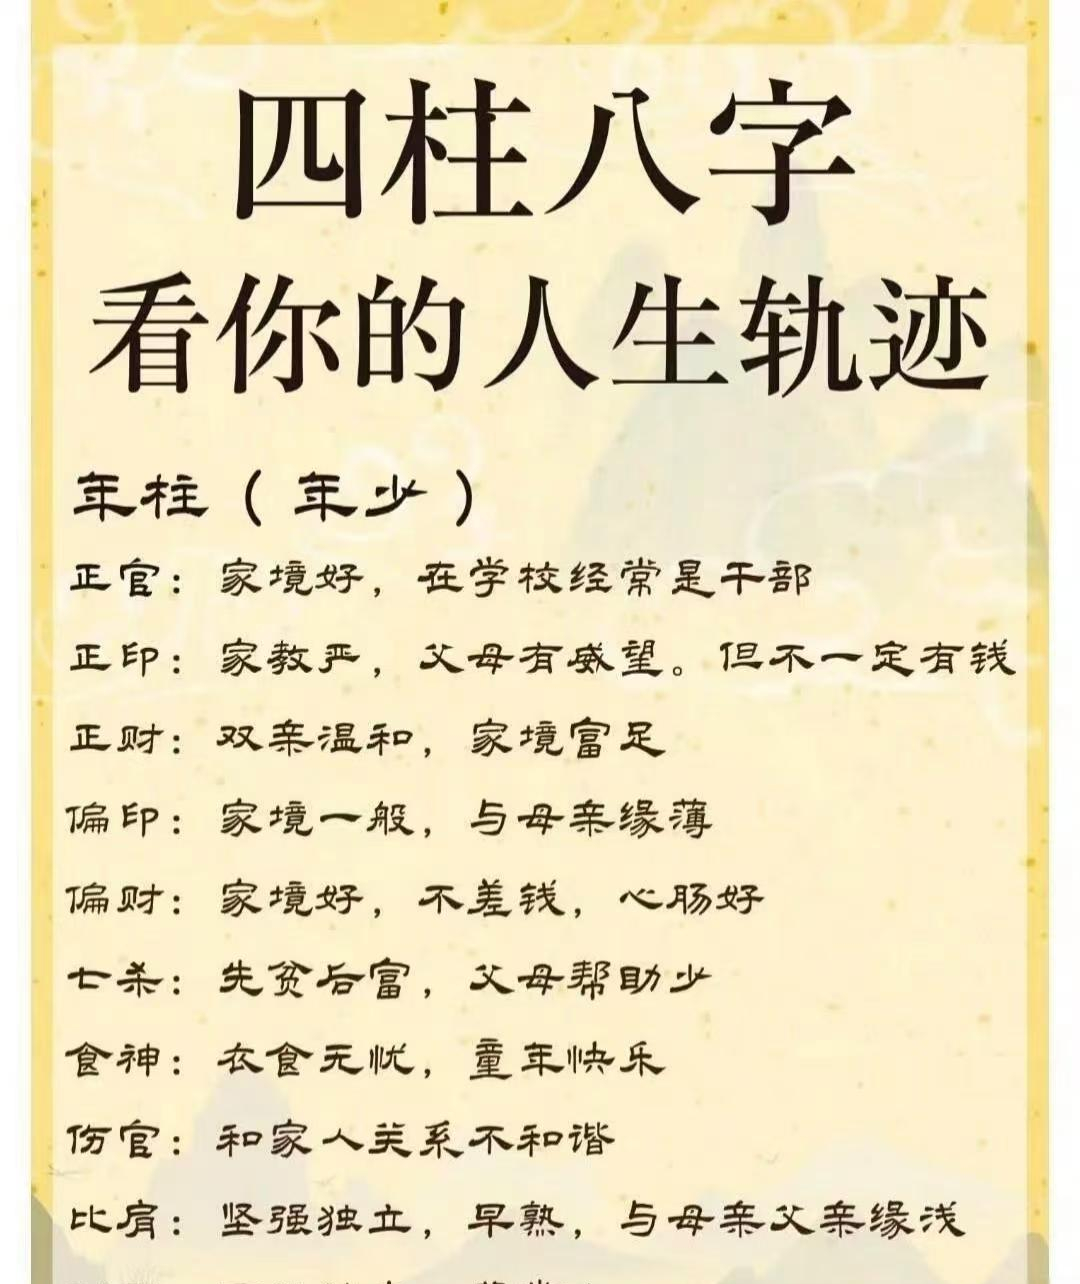 四柱八字
看你的人生轨迹
年柱（年少）
正官：家境好，在学校经常是干部
正印：家教严，父母有威望。但不一定有钱
正财：双亲温和，家境富足
偏印：家境一般，与母亲缘薄
偏财：家境好，不差钱，心肠好
七杀：先贫后富，父母帮助少
食神：衣食无忧，童年快乐
伤官：和家人关系不和谐
比肩：坚强独立，早熟，与母亲父亲缘浅